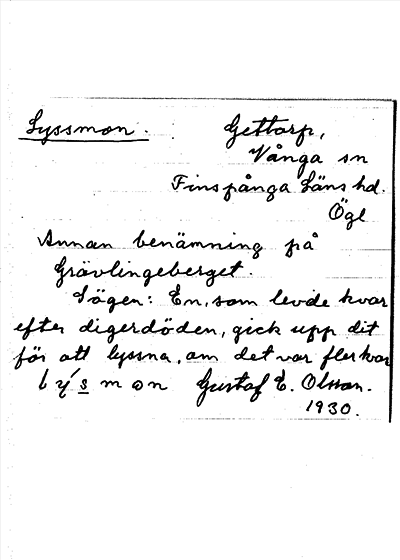 Lyssmon.
Gettorp,
Vånga sn
Finspånga Läns hd.
Ögl
Annan benämning på
Grävlingeberget.
Sägen: En, som levde kvar
efter digerdöden, gick upp dit
för att lyssna, om det var fler kvar
lýs̲mon Gustaf E. Olsson.
1930.